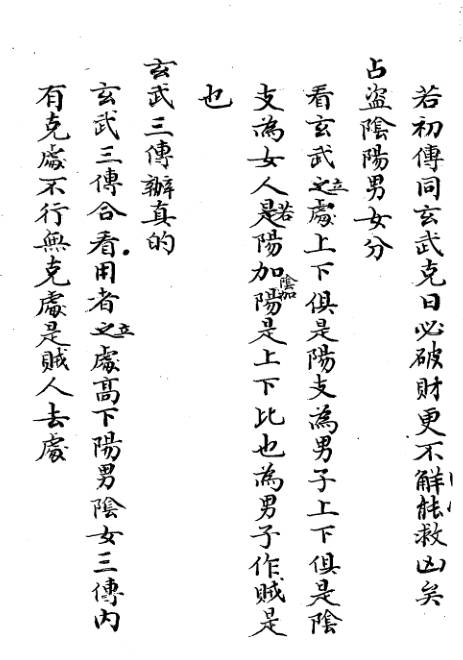 若初傳同玄武克日必破財更不解能救凶矣
占盜陰陽男女分
看玄武之立處上下俱是陽支為男子上下俱是陰
支為女人是若陽加陽陰加是上下比也為男子作賊是
也
玄武三傳辦真的
玄武三傳合看用者之立處高下陽男陰女三傳內
有克處不行無克處是賊人去處